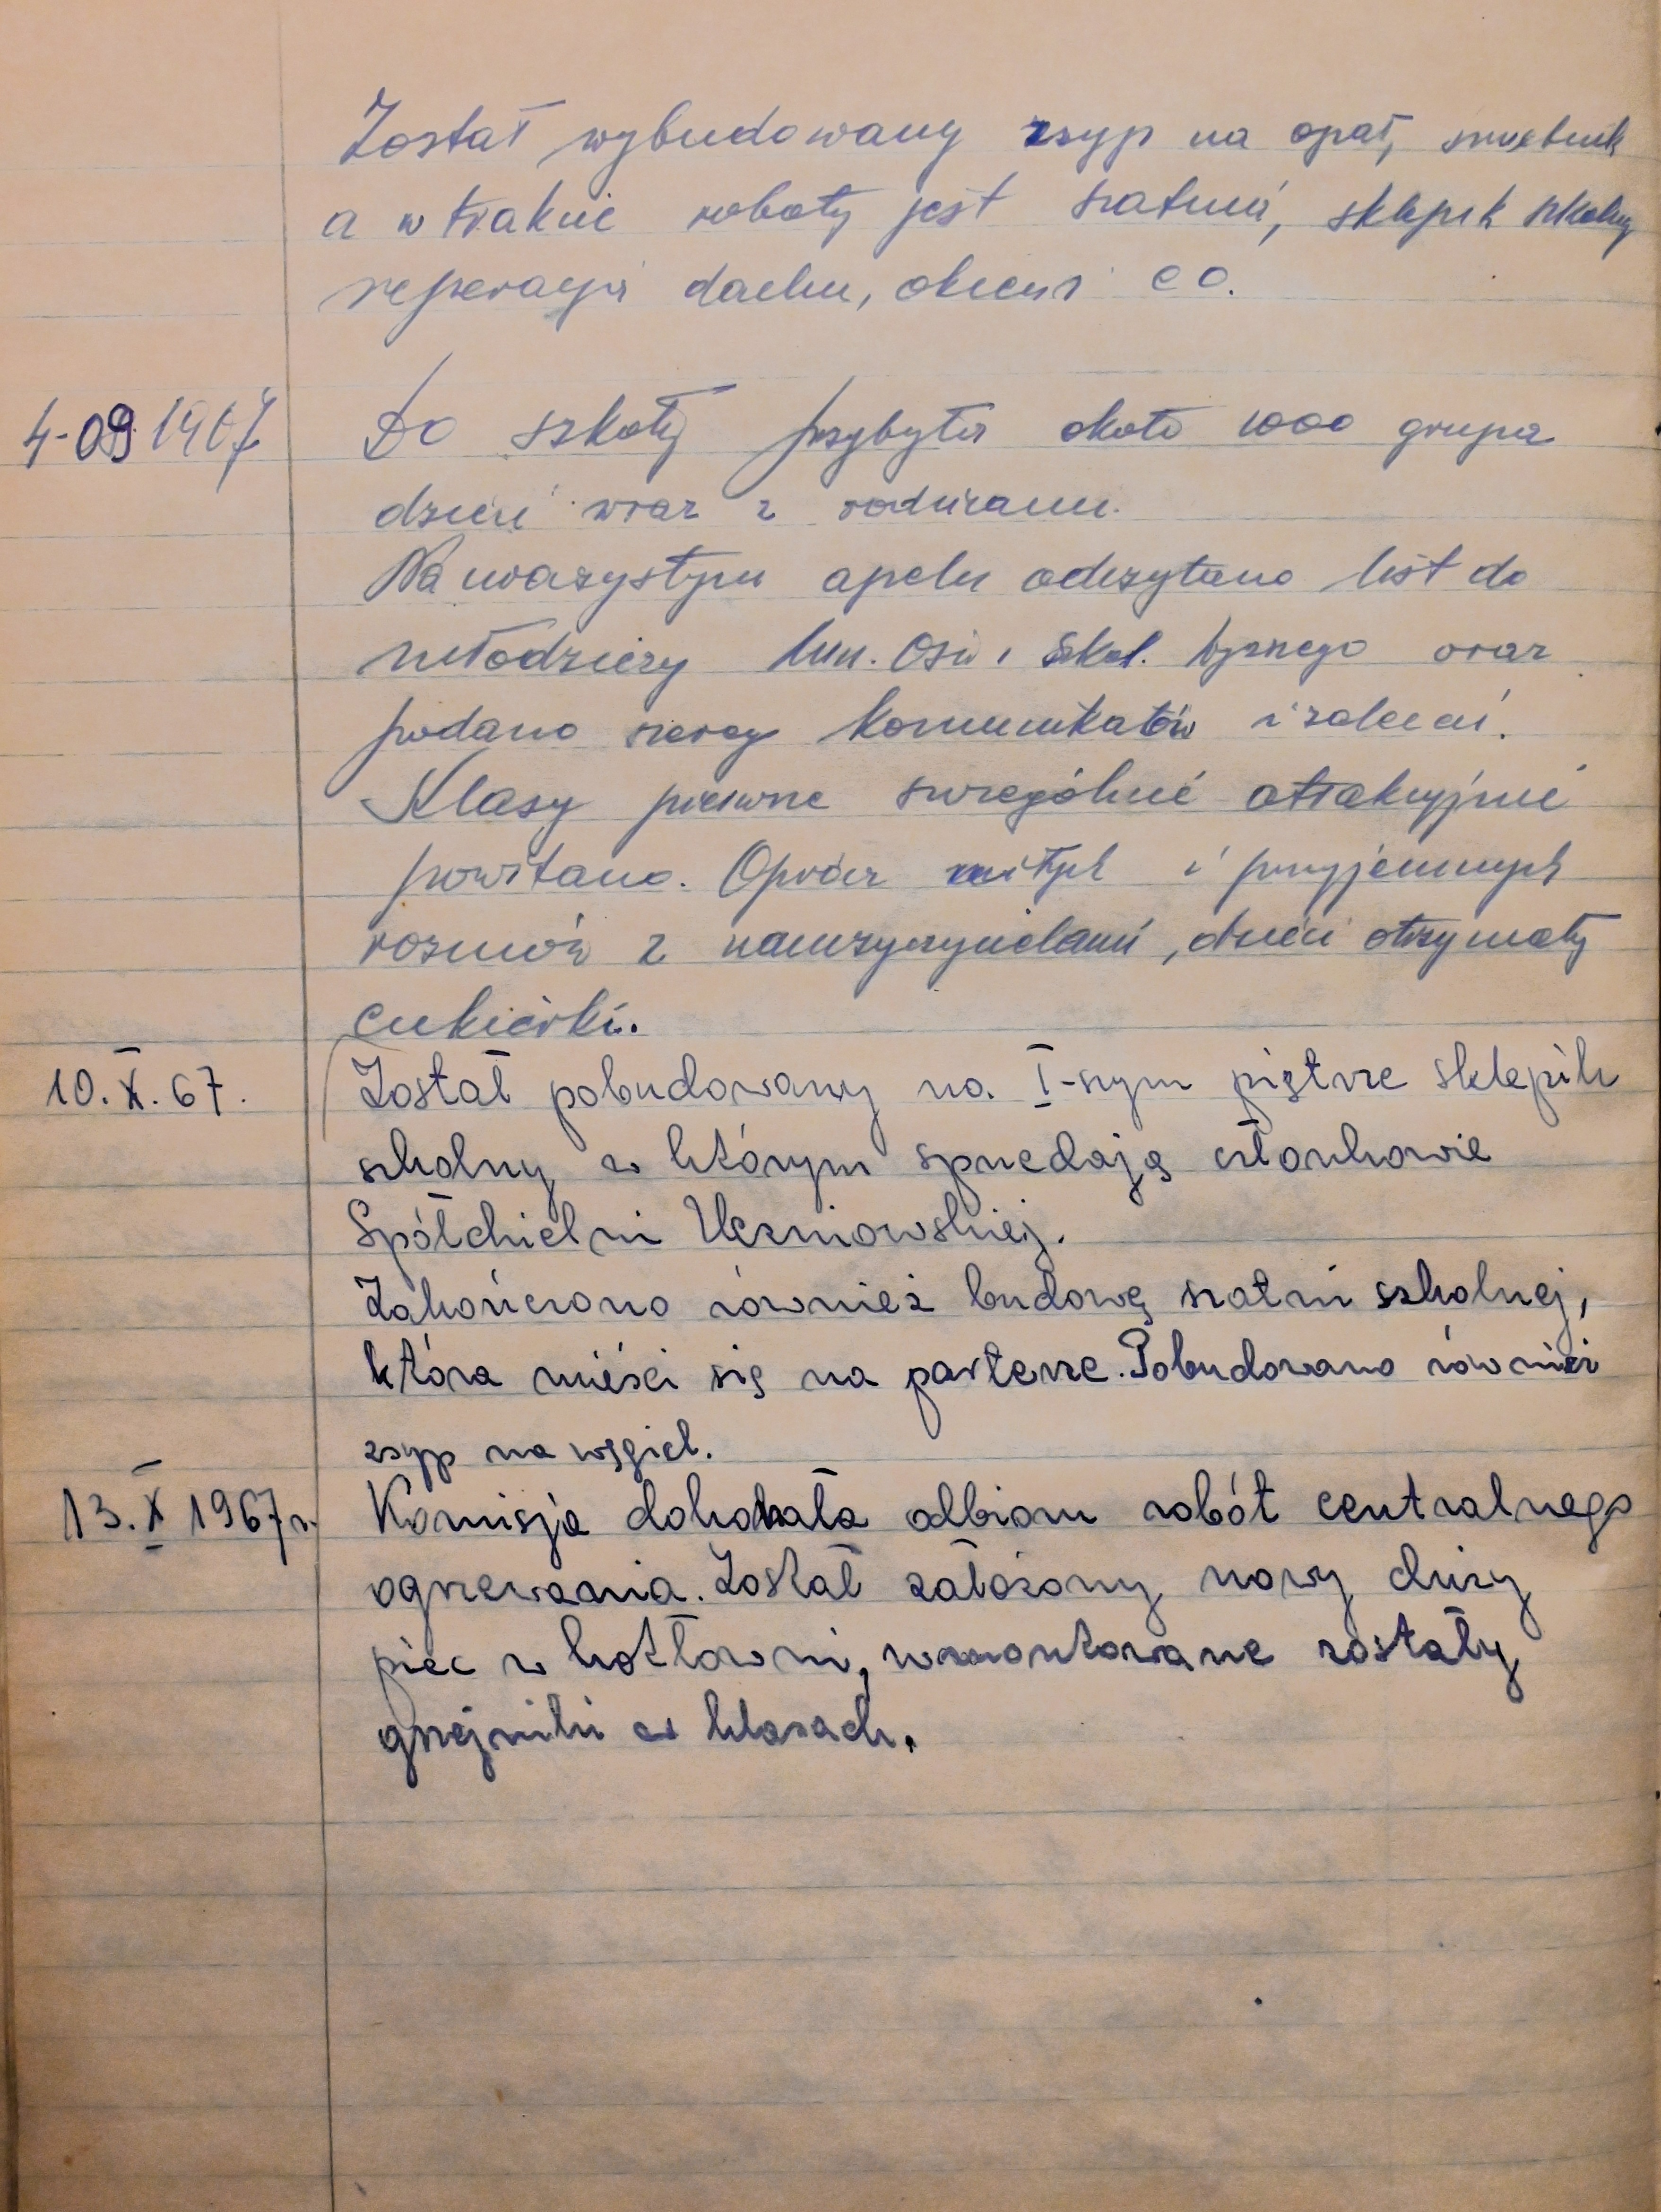 Został wybudowany zsyp na opał, śmietnik
a w trakcie roboty jest szatnia, sklepik szkolny
reperacja dachu, okien i CO.
4-09 1967 Do szkoły przybyła około 1000 grupa
dzieci wraz z rodzicami.
Na uroczystym apelu odczytano list do
młodzieży Min. Ośw. i Szkol. Wyższego oraz
podano szereg komunikatów i zaleceń.
Klasy pierwsze szczególnie atrakcyjnie
powitano. Oprócz miłych i przyjemnych
rozmów z nauczycielami, dzieci otrzymały
cukierki.
10.X.67. Został pobudowany na I-szym piętrze sklepik
szkolny w którym sprzedają członkowie
Spółdzielni Uczniowskiej.
Zakończono również budowę szatni szkolnej,
która mieści się na parterze. Pobudowano również
zsyp na węgiel.
13.X 1967r. Komisja dokonała odbioru robót centralnego
ogrzewania. Został założony nowy duży
piec w kotłowni, wmontowane zostały
grzejniki w klasach.